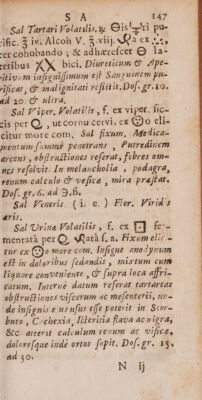 S A 147
Sal Tartari Volatilis. ℞. 🜔is 🜿ri pu-
rific. ℥ iv. Alcoh V. ℥ viij. ex
ter cohobando; & adhærescet 🜔 la-
teribus XX bici. Diureticum & Ape-
ritivum insignissimum est Sanguinem pu-
rificat, & malignitati resistit. Dos. gr. 10.
ad 20 & ultra.
Sal Viper. Volatilis, f. ex viper. sic-
cis per , ut cornu cervi, ex o eli
citur more com. Sal fixum. Medica-
mentum summè penetrans, Putredinem
arcens, obstructiones reserat, febres om-
nes resolvit. In melancholia, podagra,
renum calculo & vesicæ, mira præstat.
Dos. gr. 6. ad ℈. ß.
Sal Veneris. (i. e.) Flor. Virid's
æris.
Sal Urinæ Volatilis, f. ex fer-
mentatâ per ratâ f. a. Fixum elic-
tur ex o more com. Insigne anodynum
est in doloribus sedandis, mixtum cum
liquore conveniente, & supra loca affri-
catum. Internè datum reserat tartareas
obstructiones viscerum ac mesenterii, un-
de insignis ejus usus esse poterit in Scor-
buto, Cachexia, Icteritia flava ac nigra,
&c atterit calculum renum ac vesicæ,
doloresque indè ortos sopit. Dos. gr. 15.
ad 30.
N ij